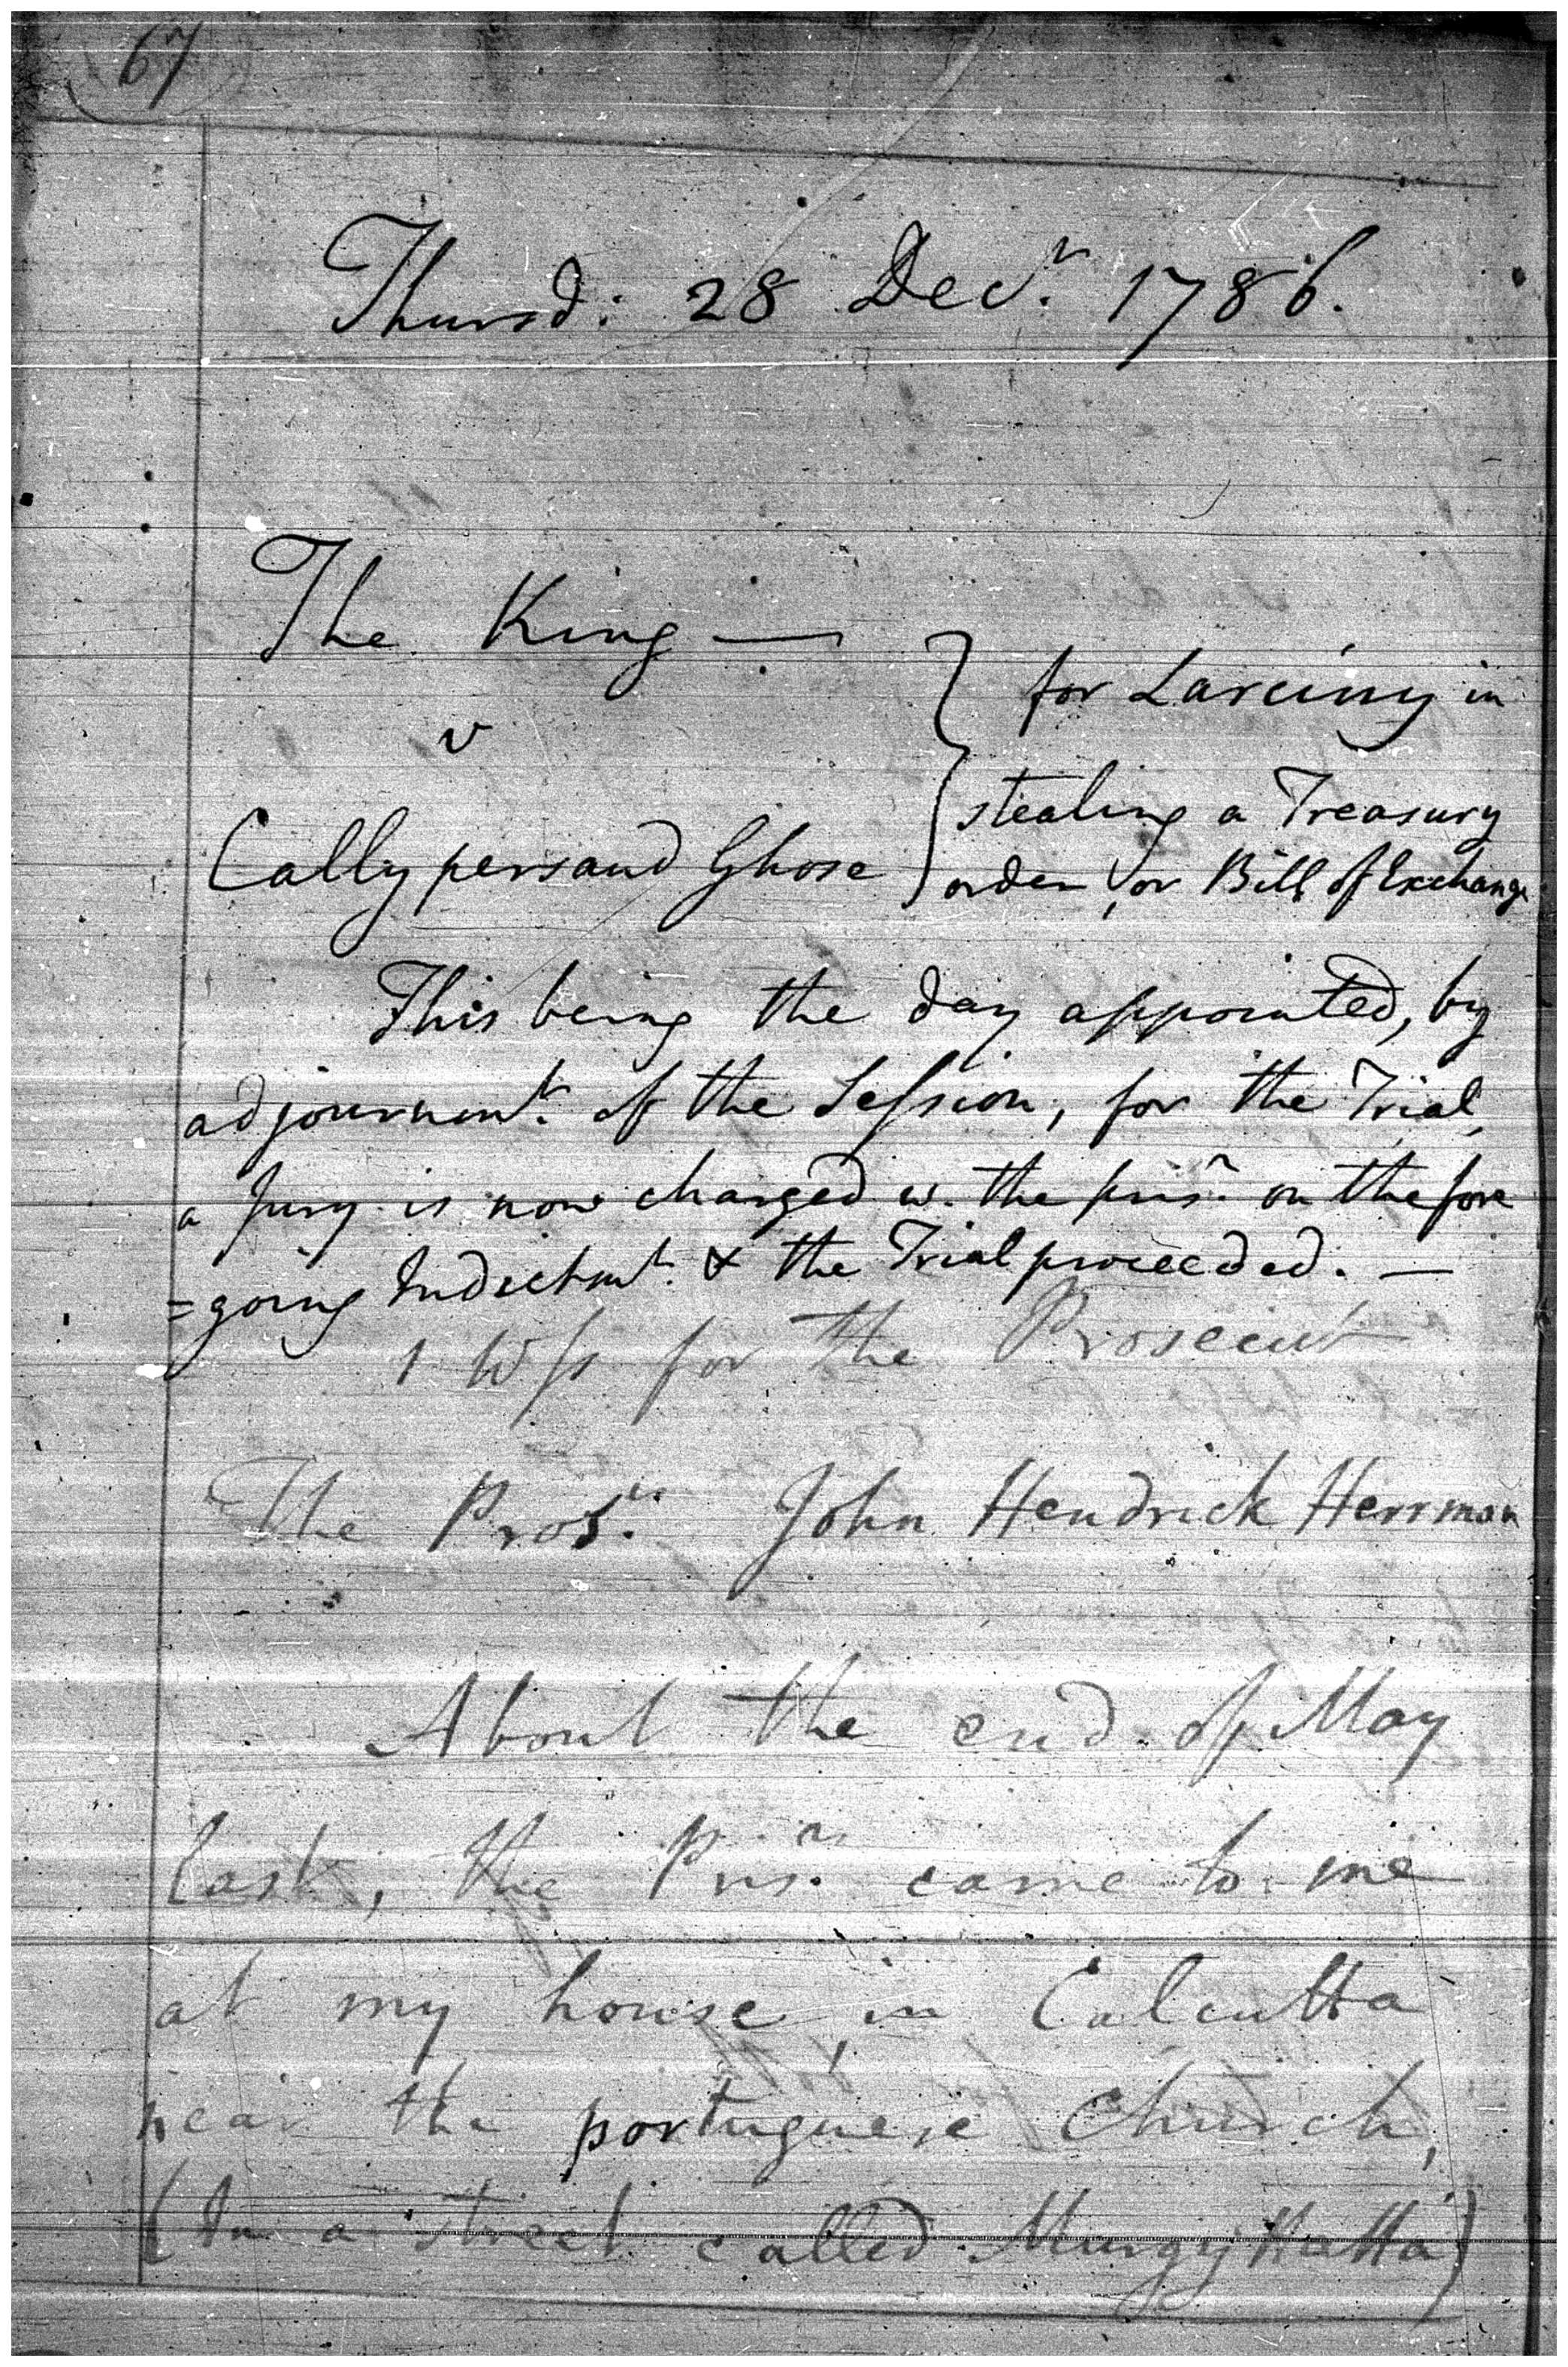 67
Thursd: 28 Decr. 1786.
The King —
v
Cally persaud Ghose
for Larciny in
stealing a Treasury
order, or Bill of Exchange
This being the day appointed, by
adjournmt. of the Session, for the Trial,
a Jury is now charged w. the prisr. on the fore
=going Indictmt. & the Trial proceeded. —
1 Wss for the Prosecut
The Prosr. John Hendrick Herrman
About the end of May
last, the Prisr. came to me
at my house, in Calcutta
near the portuguese Church,
(In a street called Murgyhatta)